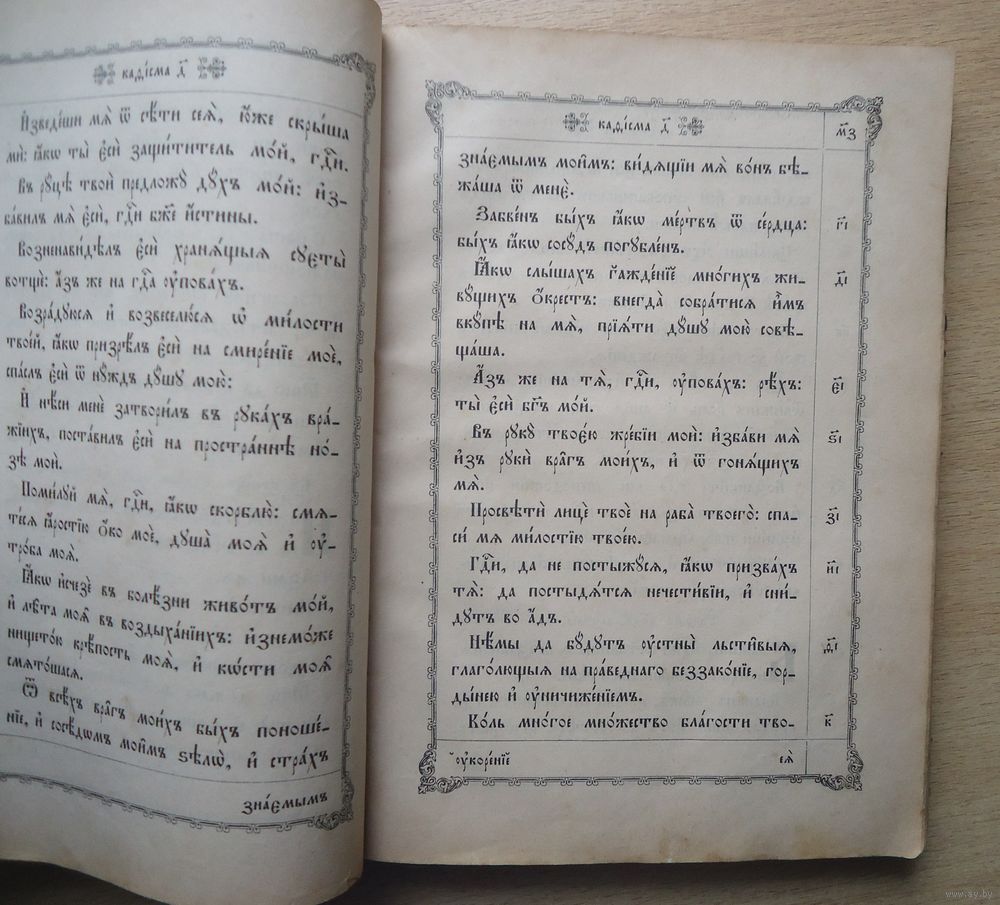 каѳі́сма д҃
И҆зведе́ши мѧ̀ ѿ сѣ́ти сеѧ̀, ю҆́же скры́ша
мѝ: ꙗ҆́кѡ ты̀ є҆сѝ защи́титель мо́й, гдⷭ҇и.
Въ рꙋ́цѣ твоѝ предложꙋ̀ дꙋ́хъ мо́й: и҆з-
ба́вилъ мѧ̀ є҆сѝ, гдⷭ҇и бж҃е и҆́стины.
Возненави́дѣлъ є҆сѝ хранѧ́щыѧ сꙋєты̀
вотщѐ: а҆́зъ же на гдⷭ҇а ᲂу҆пова́хъ.
Возра́дꙋюсѧ и҆ возвеселю́сѧ ѡ҆ ми́лости
твое́й, ꙗ҆́кѡ призрѣ́лъ є҆сѝ на смире́нїе моѐ,
спа́слъ є҆сѝ ѿ нꙋ́ждъ дꙋ́шꙋ мою̀:
И҆ нѣ́си менѐ затвори́лъ въ рꙋка́хъ вра́-
жїихъ, поста́вилъ є҆сѝ на простра́ннѣ но́-
зѣ моѝ.
Поми́лꙋй мѧ̀, гдⷭ҇и, ꙗ҆́кѡ скорблю̀: смѧ-
те́сѧ ꙗ҆́ростїю ѻ҆́ко моѐ, дꙋша̀ моѧ̀ и҆ ᲂу҆-
тро́ба моѧ̀.
Ꙗ҆́кѡ и҆счезѐ въ болѣ́зни живо́тъ мо́й,
и҆ лѣ̑та моѧ̑ въ воздыха́нїихъ: и҆знемо́же
нището́ю крѣ́пость моѧ̀, и҆ кѡ́сти моѧ̑
смѧто́шасѧ.
Ѿ всѣ́хъ вра̑гъ мои́хъ бы́хъ поноше́-
нїе, и҆ сосѣ́дѡмъ мои̑мъ ѕѣлѡ̀, и҆ стра́хъ
зна́ємымъ
каѳі́сма д҃
м҃з
зна́ємымъ мои̑мъ: ви́дѧщїи мѧ̀ во́нъ бѣ-
жа́ша ѿ менє̀.
Забве́нъ бы́хъ ꙗ҆́кѡ ме́ртвъ ѿ се́рдца:
бы́хъ ꙗ҆́кѡ сосꙋ́дъ погꙋбле́нъ.
г҃і
Ꙗ҆́кѡ слы́шахъ гажде́нїе мно́гихъ жи-
вꙋ́щихъ ѡ҆́крестъ: внегда̀ собра́тисѧ и҆̀мъ
вкꙋ́пѣ на мѧ̀, прїѧ́ти дꙋ́шꙋ мою̀ совѣ-
ща́ша.
д҃і
А҆́зъ же на тѧ̀, гдⷭ҇и, ᲂу҆пова́хъ: рѣ́хъ:
ты̀ є҆сѝ бг҃ъ мо́й.
є҃і
Въ рꙋкꙋ̀ твоє́ю жрє́бїи моѝ: и҆зба́ви мѧ̀
и҆з̾ рꙋкѝ вра̑гъ мои́хъ, и҆ ѿ гонѧ́щихъ
мѧ̀.
ѕ҃і
Просвѣтѝ лицѐ твоѐ на раба̀ твоего̀: спа-
си́ мѧ ми́лостїю твое́ю.
з҃і
Гдⷭ҇и, да не постыжꙋ́сѧ, ꙗ҆́кѡ призва́хъ
тѧ̀: да постыдѧ́тсѧ нечести́вїи, и҆ сни́-
дꙋтъ во а҆́дъ.
и҃і
Нѣ́мы да бꙋ́дꙋтъ ᲂу҆стны̀ льсти̑выѧ,
глаго́лющыѧ на пра́веднаго беззако́нїе, гор-
ды́нею и҆ ᲂу҆ничиже́нїемъ.
ѳ҃і
Ко́ль мно́гое мно́жество бла́гости тво-
к҃
ᲂу҆коре́нїе
еѧ̀
www.ay.by